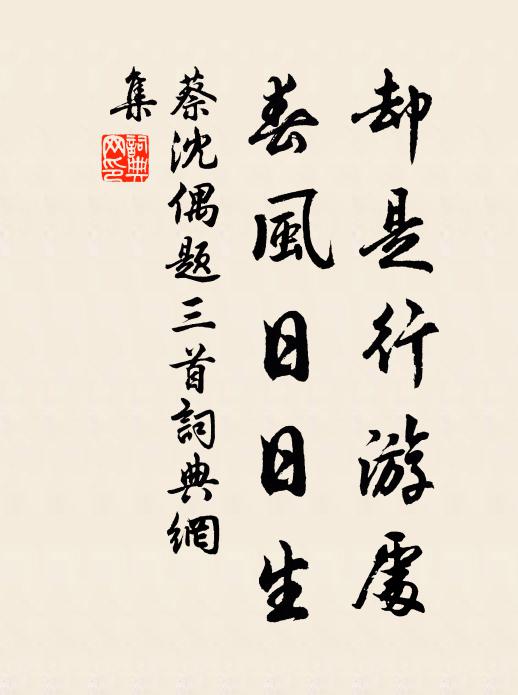 却是行游處
春風日日生
蔡沈偶題三首詞典網
集
詞典網印